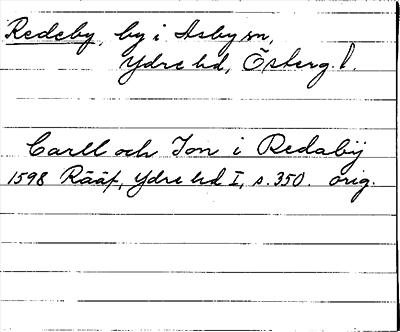 Redeby, by i Asby sn,
Ydre hd, Österg. l.
Carll och Jon i Redaby
1598 Rääf, Ydre hd I, s. 350. orig.